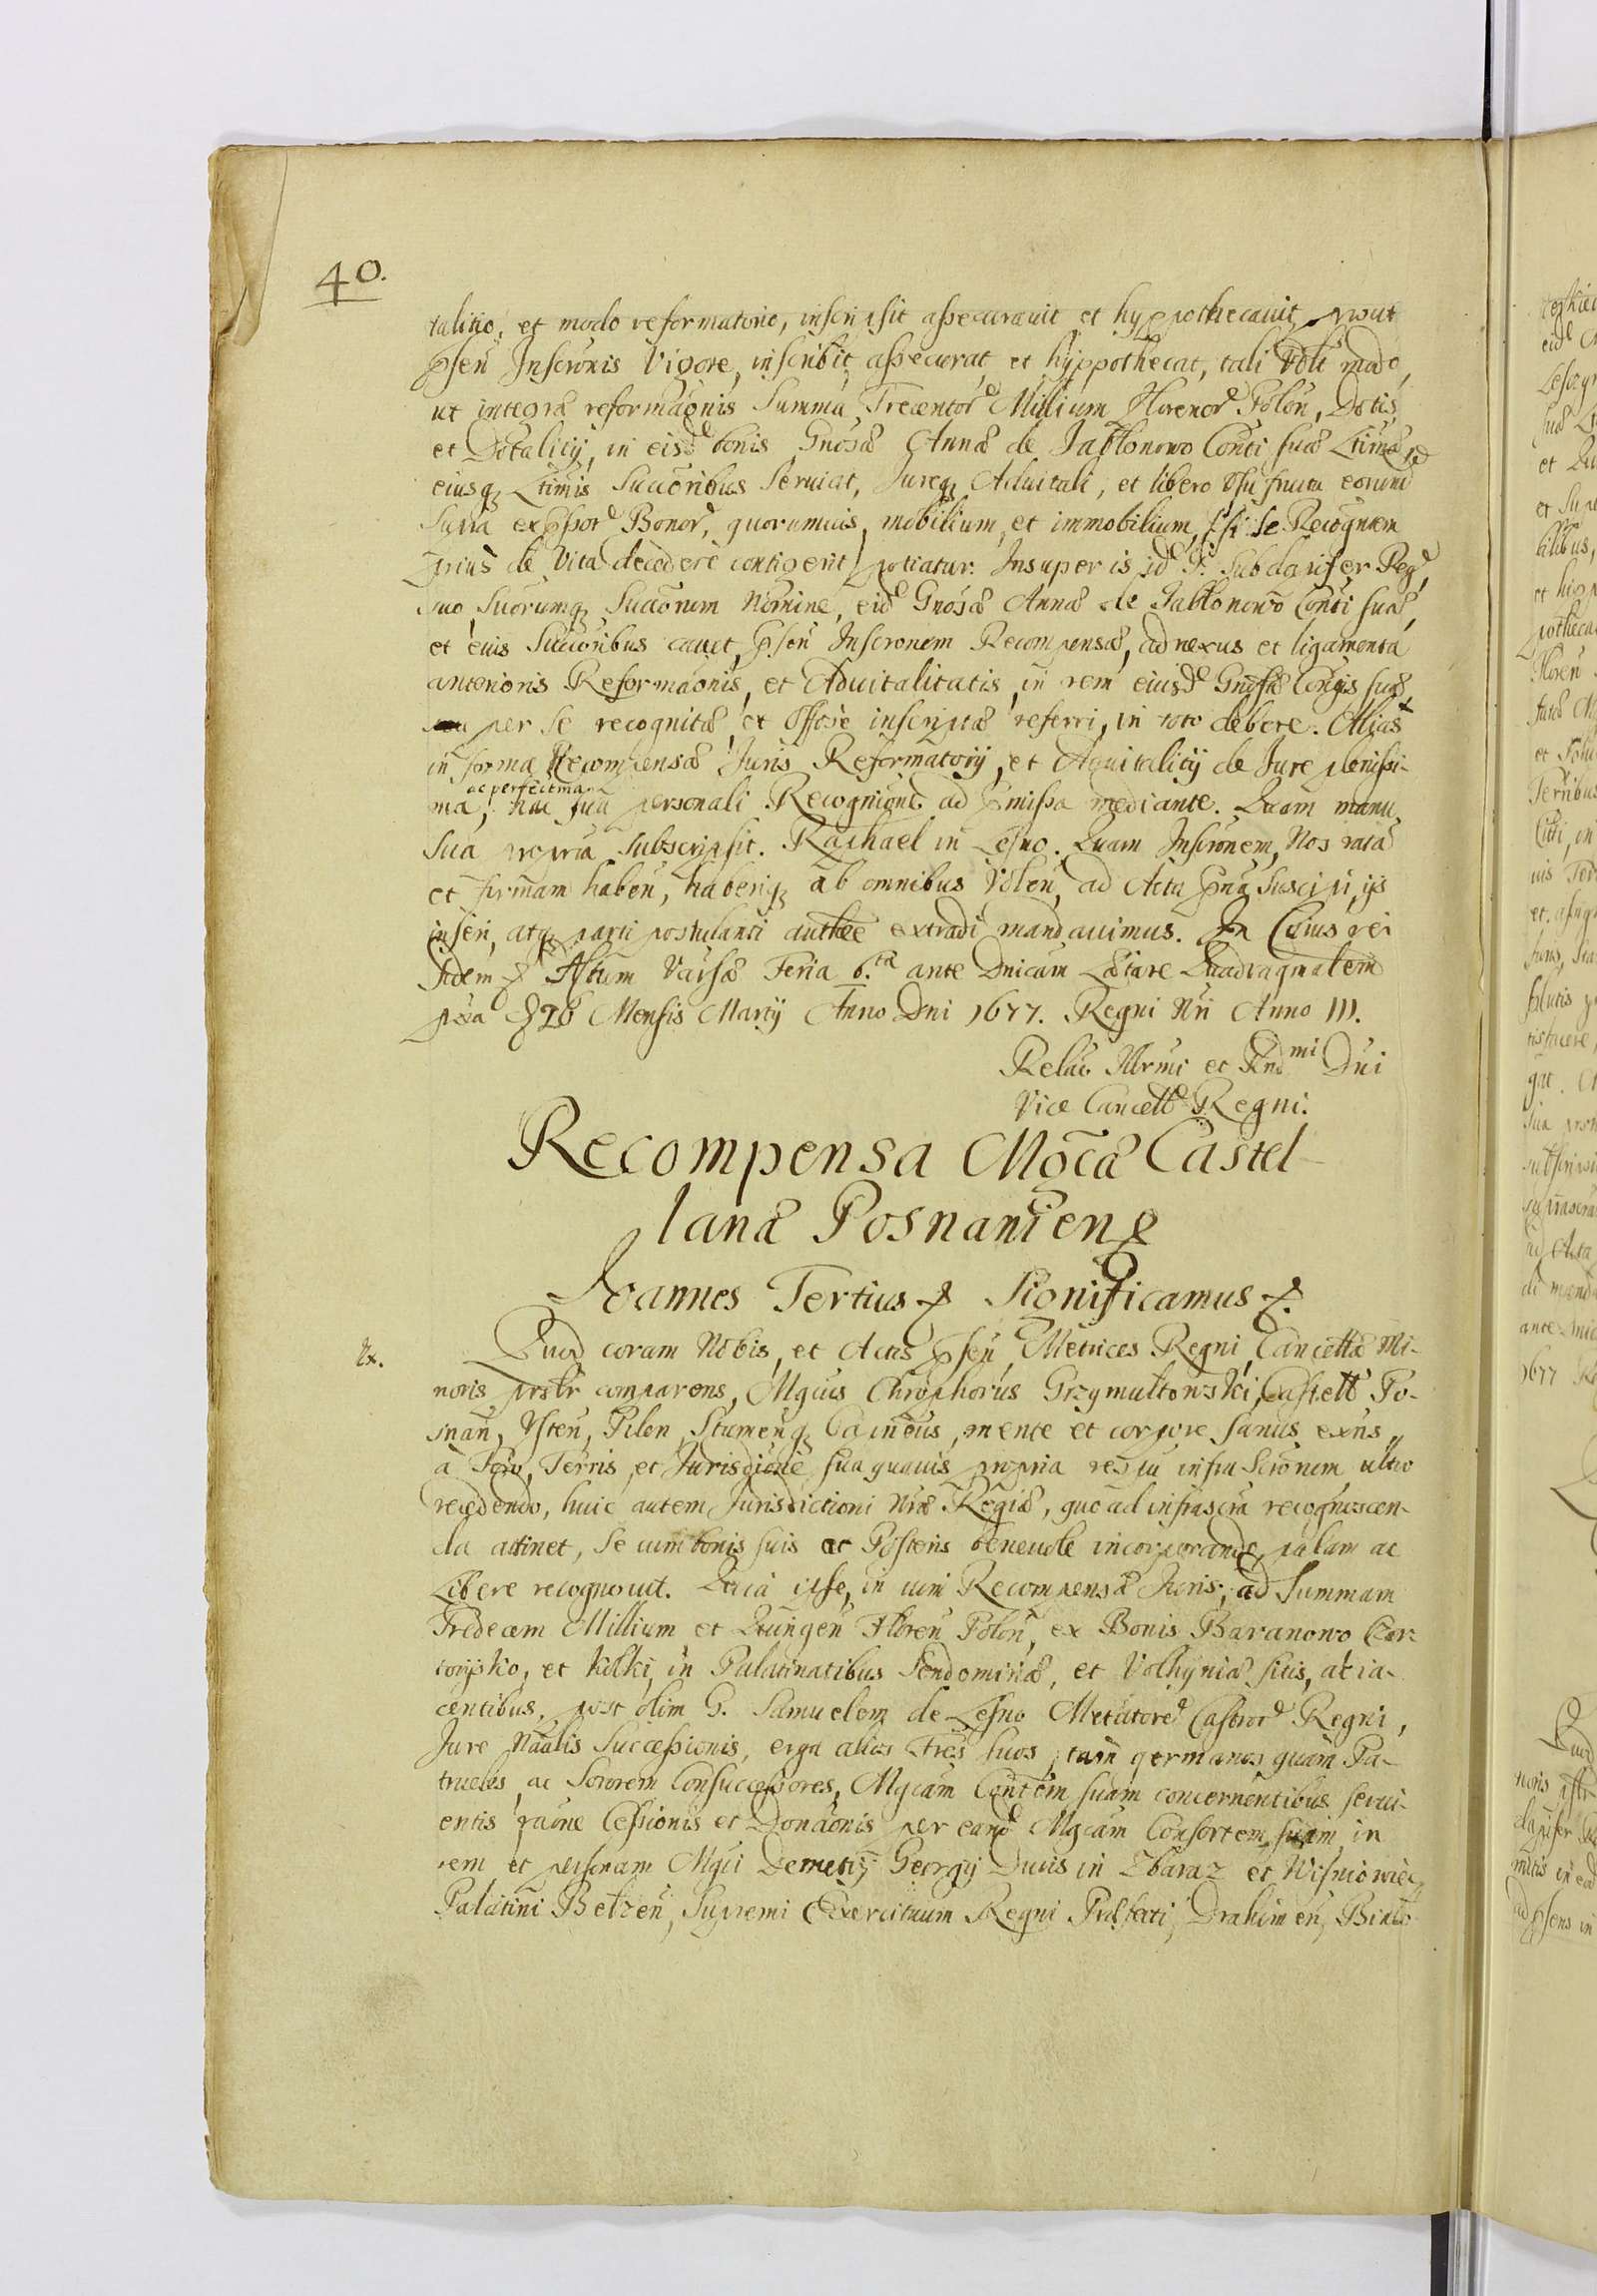 40.
talitio, et modo reformatorio, inscripsit assecuravit et hyppothecavit, prout
psen Inscronis Vigore, inscribit assecurat, et hyppothecat, tali modo,
ut integra reformaonis Summa Trecentor Millium Florenor Polon, Dotis
et Dotalitij, in eisd bonis Gnosæ Annæ de Jabłonowo Conti suæ Ltimæ
eiusq Ltimis Succoribus Serviat, Jureq Advitali, et libero Usufructu eorund
Supra expssor Bonor, quorumvis, mobilium, et immobilium, si Se Recognrem
prius de Vita decedere contigerit potiatur. Insuper is id G. Subdapifer Reg,
suo, Suorumq Succorum Nomine, eid Gnosæ Annæ de Jabłonowo Conti suæ,
et eius Succoribus cavet, Psen Inscronem Recompensæ, ad nexus et ligamenta
anterioris Reformaonis, et Advitalitatis, in rem eiusd Gnosæ Congis suæ,
per Se recognitæ, et Offose inscriptæ referri, in toto debere. Alias
in forma Recompensæ Juris Reformatorij, et Advitalitij de Jure plenissi-
ac perfectma
ma, hac sua personali Recognione ad pmissa mediante. Quam manu
Sua propria Subscripsit. Raphael in Lesno. Quam Inscronem, Nos rata
et firmam haben, haberiq ab omnibus Volen, ad Acta pnta Suscipi, ijs
inseri, atq parti postulanti authce extradi mandavimus. In Cuius rei
fidem Actum Varsæ Feria 6.ta ante Dnicam Lætare Quadragmalem
pxa 26 Mensis Martij Anno Dni 1677. Regni Nri Anno III.
Relao Illrmi et Rndmi Dni
Vice Cancell Regni.
Recompensa Mgcæ Castel-
lanæ Posnanien
Joannes Tertius Significamus
Quod coram Nobis, et Actis psen Metrices Regni, Cancellæ Mi-
noris prstr comparens, Mgcus Chrophorus Grzymułtowski, Castell Po-
snan, Usten, Pilen, Stumenq Capneus, mente et corpore sanus exns,
à Foro, Terris, et Jurisdicione sua quavis propria ultro
recedendo, huic autem Jurisdictioni Nræ Regiæ, quo ad infrascra recognoscen-
da attinet, Se cum bonis suis ac Posteris benevole incorporando, palam ac
Libere recognovit. Quia ipse, in vim Recompensæ Juris, ad Summam
Tredecem Millium et Quingen Floren Polon, ex Bonis Baranowo Czar-
torysko, et Kilki, in Palatinatibus Sendomiriæ, et Volhyniæ sitis, ac ia-
centibus, post olim G. Samuelem de Lesno Metatore Castror Regni,
Jure Naalis Successionis, erga alios Fres suos, tam germanos quàm Pa-
trueles, ac Sororem Consuccessores, Mgcam Contem suam concernentibus servi-
entis raone Cessionis et Donaonis per eand Mgcam Consortem suam in
rem et personam Mgci Demetrij Georgij Ducis in Zbaraz et Wisniowiec
Palatini Bełzen, Supremi Exercituum Regni Præfecti, Drahimen,